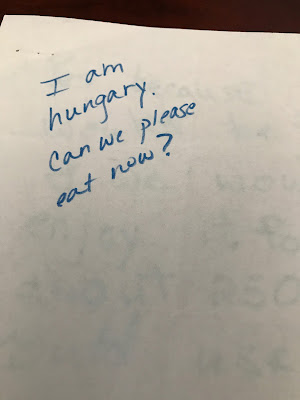 I am
hungary.
can we please
eat now?